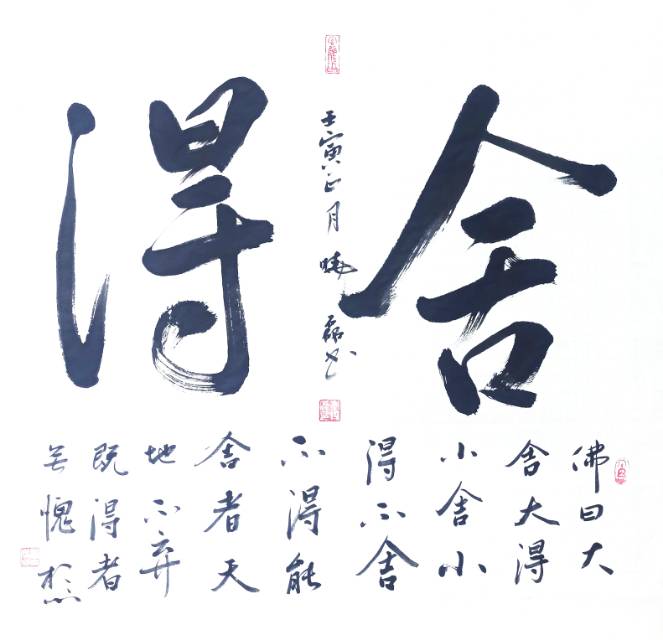 舍得
壬寅正月晓磊书
佛曰大
舍大得
小舍小
得不舍
不得能
舍者天
地不弃
既得者
无愧於心